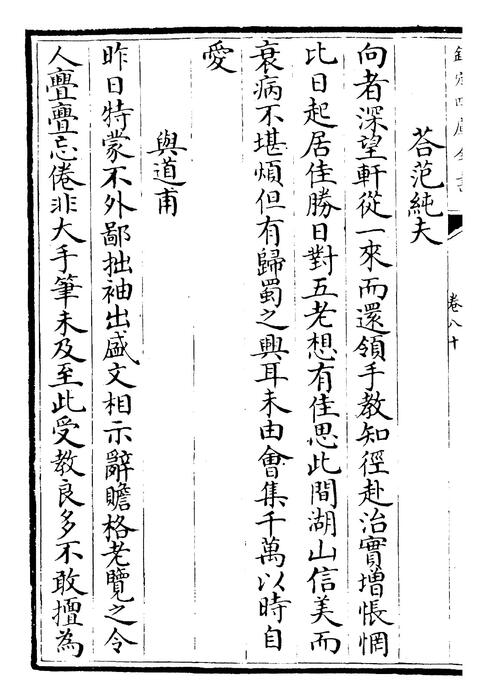 欽定四庫全書
卷八十
荅范純夫
向者深望軒從一來而還領手教知徑赴治實增悵惘
比日起居佳勝日對五老想有佳思此間湖山信美而
衰病不堪煩但有歸蜀之興耳未由會集千萬以時自
愛
與道甫
昨日特蒙不外鄙拙袖出盛文相示辭贍格老覽之令
人亹亹忘倦非大手筆未及至此受教良多不敢擅為